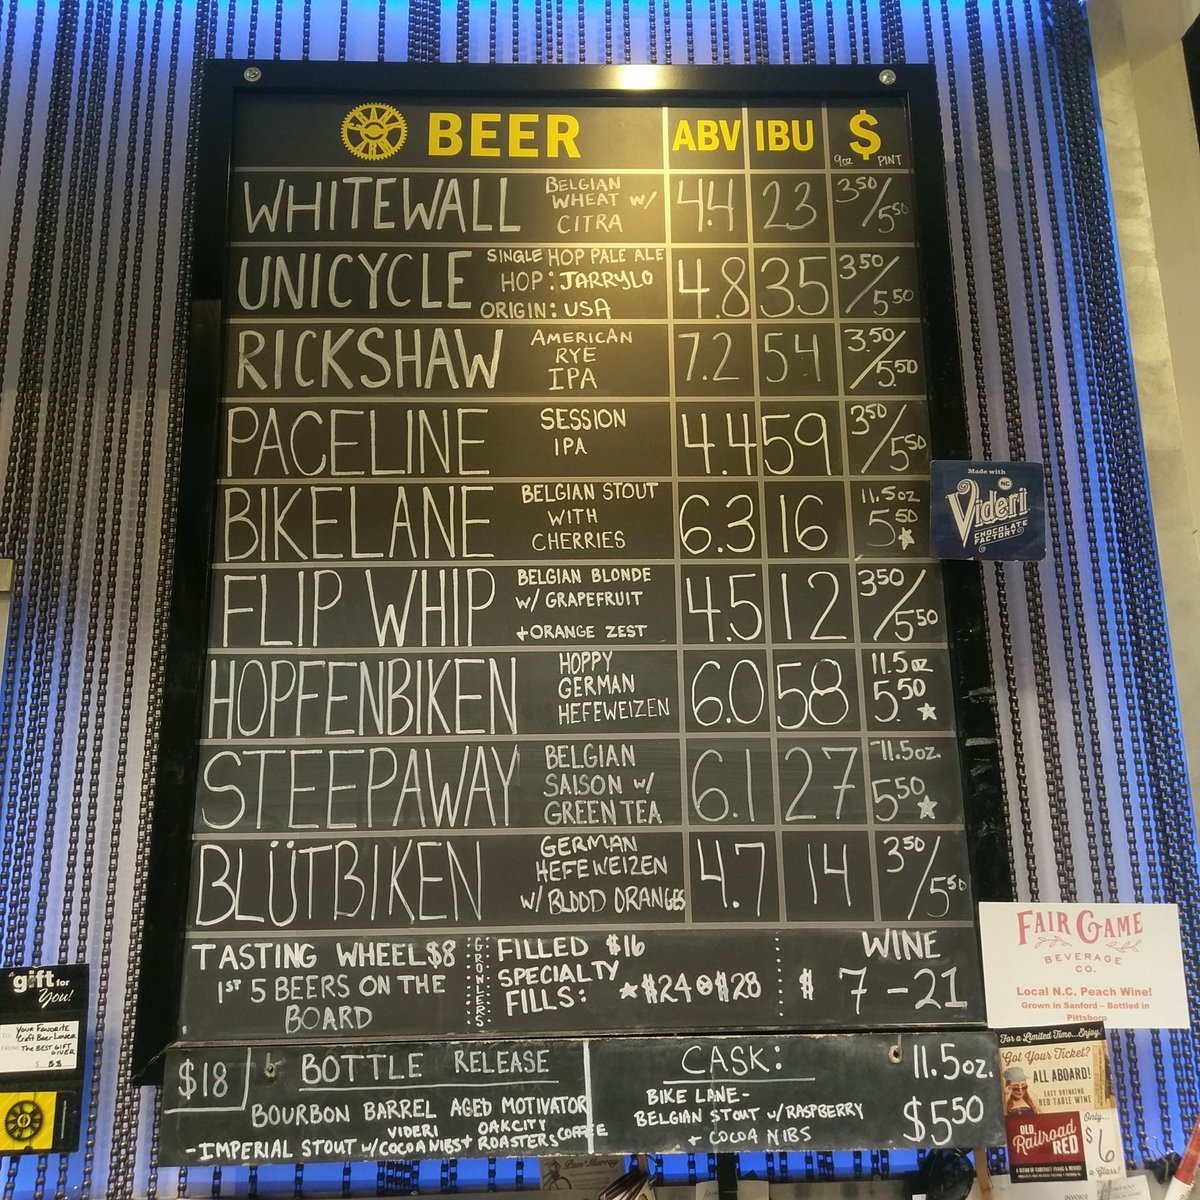 BEER ABV IBU $
9oz PINT
WHITEWALL BELGIAN WHEAT W/ CITRA 4.4 23 3.50/5.50
UNICYCLE SINGLE HOP PALE ALE HOP: JARRYLO ORIGIN: USA 4.8 35 3.50/5.50
RICKSHAW AMERICAN RYE IPA 7.2 54 3.50/5.50
PACELINE SESSION IPA 4.4 59 3.50/5.50
BIKELANE BELGIAN STOUT WITH CHERRIES 6.3 16 11.5oz 5.50 ★
FLIP WHIP BELGIAN BLONDE W/ GRAPEFRUIT + ORANGE ZEST 4.5 12 3.50/5.50
HOPFENBIKEN HOPPY GERMAN HEFEWEIZEN 6.0 58 11.5 oz 5.50 ★
STEEPAWAY BELGIAN SAISON W/ GREEN TEA 6.1 27 11.5oz. 5.50 ★
BLÜTBIKEN GERMAN HEFEWEIZEN W/ BLOOD ORANGES 4.7 14 3.50/5.50
TASTING WHEEL $8
1ST 5 BEERS ON THE
BOARD
GROWLERS
FILLED $16
SPECIALTY
FILLS: ★$24 ⊗$28
WINE
$ 7-21
$18 BOTTLE RELEASE
BOURBON BARREL AGED MOTIVATOR
VIDERI OAKCITY
-IMPERIAL STOUT W/COCOA NIBS + ROASTERS COFFEE
CASK: 11.5oz.
BIKE LANE-
BELGIAN STOUT W/RASPBERRY $5.50
+ COCOA NIBS
Made with
NC
Videri
CHOCOLATE
FACTORY
FAIR GAME
BEVERAGE
CO.
Local N.C. Peach Wine!
Grown in Sanford - Bottled in
Pittsboro
For a Limited Time...Enjoy!
Got Your Ticket?
ALL ABOARD!
EASY DRINKING
RED TABLE WINE
OLD
Railroad
RED
Only...
$6
a Glass!
a gift for
You!
TO YOUR FAVORITE
Craft Beer Lover
FROM THE BEST GIFT
GIVER